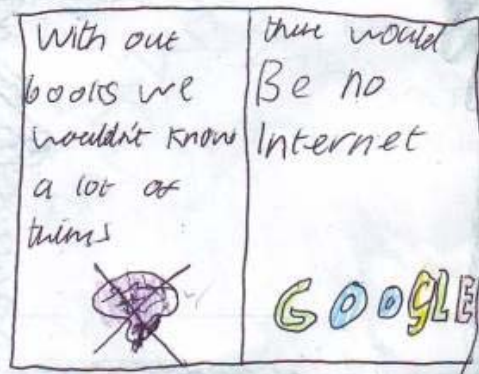 With out
books we
wouldn't know
a lot of
thims
there would
Be no
Internet
GOOGLE